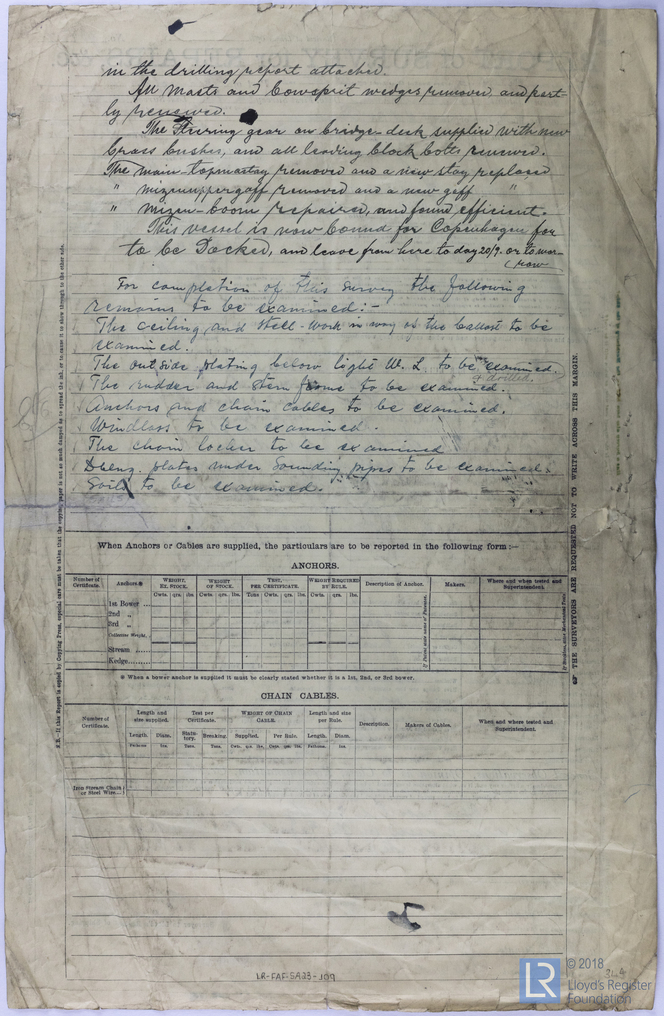 in the drilling report attached.
All Masts and bowsprit wedges removed and part-
ly renewed.
The Steering gear on bridge-deck supplied with new
brass bushes, and all leading block bolts renewed.
The main-topmaststay removed and a new stay replaced
" mizenuppergaff removed and a new gaff "
" mizen-boom repaired, and found efficient.
This vessel is now bound for Copenhagen for
to be Docked, and leave from here to day 20/9. or to mor-
(row
For completion of this survey the following
remains to be examined:-
The ceiling and steel-work in way of the ballast to be
examined.
The outside plating below light W. L. to be examined.
& drilled.
The rudder and stern frame to be examined.
Anchors and chain cables to be examined.
Windlass to be examined.
The chain locker to be examined
plates under Sounding pipes to be examined.
Sails to be examined.
When Anchors or Cables are supplied, the particulars are to be reported in the following form:—
ANCHORS.
Number of Certificate.
Anchors.*
WEIGHT, EX. STOCK.
WEIGHT OF STOCK.
TEST, PER CERTIFICATE.
WEIGHT REQUIRED BY RULE.
Description of Anchor.
Makers.
Where and when tested and Superintendent.
Cwts. qrs. lbs. Cwts. qrs. lbs. Tons Cwts. qrs. lbs. Cwts. qrs. lbs.
1st Bower ...
2nd "
3rd "
Collective Weight.
Stream ...
Kedge.........
* When a bower anchor is supplied it must be clearly stated whether it is a 1st, 2nd, or 3rd bower.
CHAIN CABLES.
Number of Certificate.
Length and size supplied.
Test per Certificate.
WEIGHT OF CHAIN CABLE.
Length and size per Rule.
Description.
Makers of Cables.
When and where tested and Superintendent.
Length. Diam. Statutory. Breaking. Supplied. Per Rule. Length. Diam.
Fathoms. Ins. Tons. Tons. Cwts. qrs. lbs. Cwts. qrs. lbs. Fathoms. Ins.
Iron Stream Chain or Steel Wire...
THE SURVEYORS ARE REQUESTED NOT TO WRITE ACROSS THIS MARGIN.
LR-FAF-SA23-109
344
LR
© 2018
Lloyd's Register
Foundation